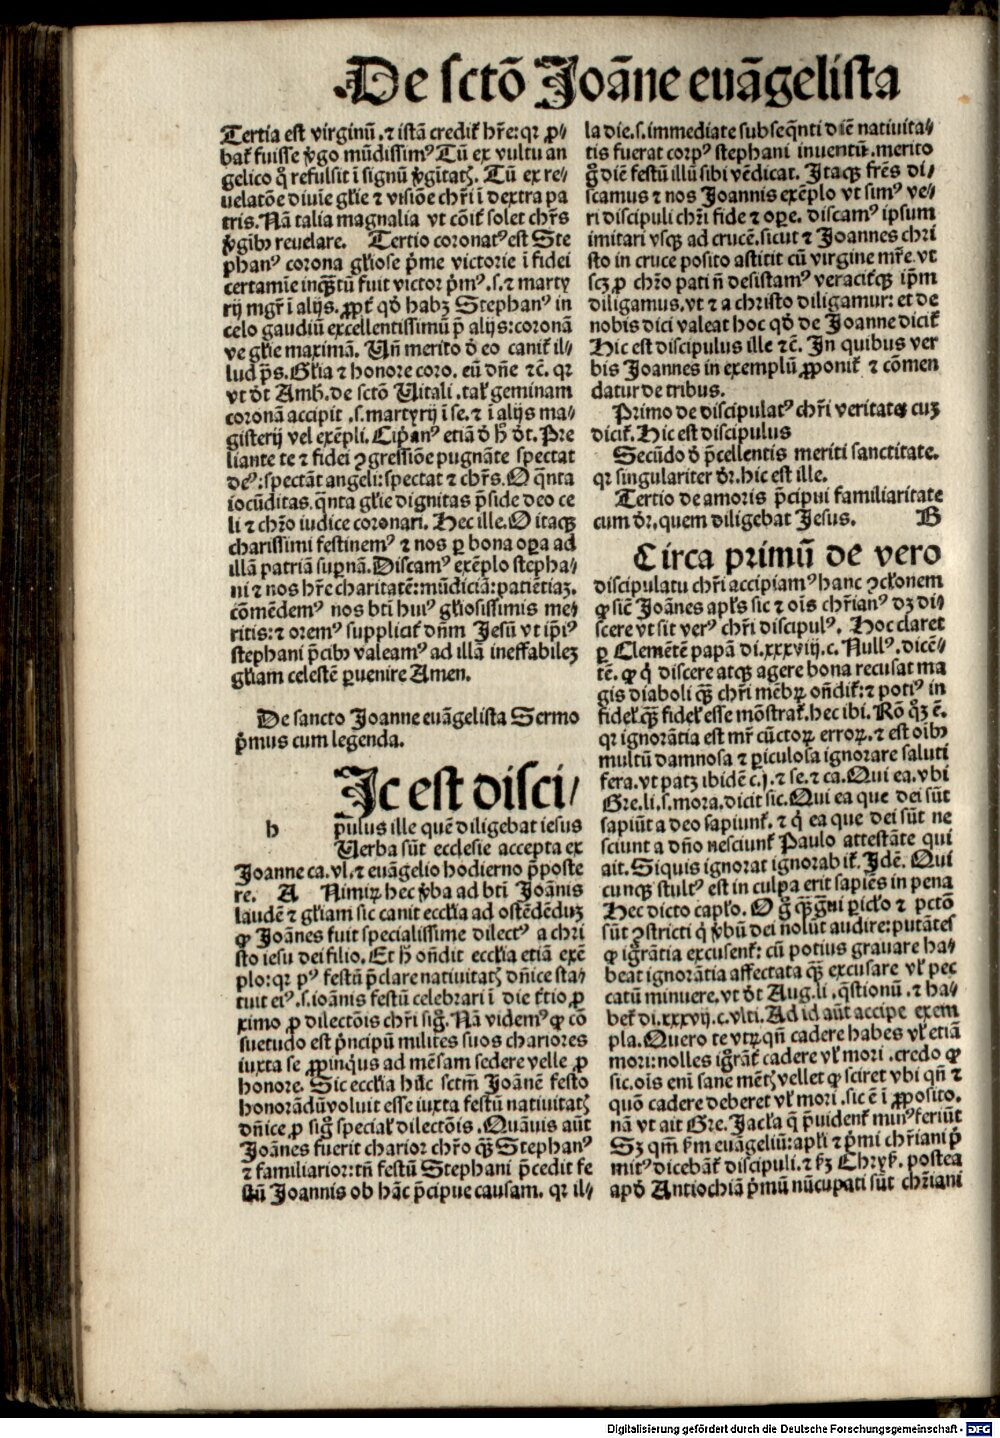 De sctō Joāne euāgelista
Tertia est virginū. ⁊ istā credit᷑ hr̄e: qꝛ ꝓ-
bat᷑ fuisse ꝟgo mūdissimꝰ Tū ex vultu an
gelico q̄ refulsit ī signū ꝟgītatꝭ. Tū ex re-
uelatōe diuīe gl̄ie ⁊ visiōe chr̄i ī dextra pa
tris. Nā talia magnalia vt cōit᷑ solet chr̄s
ꝟgībꝫ reuelare. Tertio coronatꝰ est Ste
phanꝰ corona gl̄iose p̄me victorie ī fidei
certamīe inqꝫtū fuit victor p̄mꝰ .s. ⁊ marty
rij mgr̄ ī alijs. ꝓpt᷑ qd̄ habꝫ Stephanꝰ in
celo gaudiū excellentissimū p̄ alijs: coronā
ve gl̄ie maximā. Vn̄ merito d̄ eo canit᷑ il-
lud p̄s. Gl̄ia ⁊ honore coro. eū dn̄e ⁊c̄. qꝛ
vt d̄t Amb̄. de sctō Vitali. tal᷑ geminam
coronā accipit .s. martyrij ī se. ⁊ ī alijs ma-
gisterij vel exēpli. Cip̄anꝰ etiā d̄ h̄ d̄t. Pre
liante te ⁊ fidei ꝯgressiōe pugnāte spectat
deꝰ: spectāt angeli: spectat ⁊ chr̄s. O q̄nta
iocūditas. q̄nta gl̄ie dignitas p̄side deo ce
li ⁊ chr̄o iudice coronari. Hec ille. O itaqꝫ
charissimi festinemꝰ ⁊ nos ꝑ bona oꝑa ad
illā patriā suꝑnā. Discamꝰ exēplo stepha-
ni ⁊ nos hr̄e charitatē: mūdiciā: patiētiaꝫ.
cōmēdemꝰ nos bt̄i huiꝰ gl̄iosissimis me-
ritis: ⁊ oremꝰ supplicit᷑ dn̄m Jesū vt ip̄iꝰ
stephani p̄cibꝫ valeamꝰ ad illā ineffabileꝫ
gl̄iam celestē ꝑuenire Amen.
De sancto Joanne euāgelista Sermo
p̄mus cum legenda.
Jc est disci-
h pulus ille quē diligebat iesus
Verba sūt ecclesie accepta ex
Joanne ca. vl. ⁊ euāgelio hodierno p̄poste
re. A Nimiꝝ hec ꝟba ad bt̄i Joānis
laudē ⁊ gl̄iam sic canit eccl̄ia ad ostēdēduꝫ
ꝙ Joānes fuit specialissime dilectꝰ a chri
sto iesu dei filio. Et h̄ on̄dit eccl̄ia etiā exē
plo: qꝛ pꝰ festū p̄clare natiuitatꝭ dn̄ice sta-
tuit eiꝰ .s. ioānis festū celebrari ī die t̄tio ꝓ
ximo ꝓ dilectōis chr̄i siḡ. Nā videmꝰ ꝙ cō
suetudo est p̄ncipū milites suos chariores
iuxta se ꝓpinq̇us ad mēsam sedere velle ꝓ
honore. Sic eccl̄ia hūc sctm̄ Joānē festo
honorādū voluit esse iuxta festū natiuitatꝭ
dn̄ice ꝓ siḡ special᷑ dilectōis. Quāuis aūt
Joānes fuerit charior chr̄o qꝫ̄ Stephanꝰ
⁊ familiarior: tn̄ festū Stephani p̄cedit fe
stū Joannis ob hāc p̄cipue causam. qꝛ il-
la die .s. immediate subseq̄nti diē natiuita-
tis fuerat corpꝰ stephani inuentū. merito
g̊ diē festū illū sibi vēdicat. Itaqꝫ fr̄es di-
scamus ⁊ nos Joannis exēplo vt simꝰ ve-
ri discipuli chr̄i fide ⁊ oꝑe. discamꝰ ipsum
imitari vsqꝫ ad crucē. sicut ⁊ Joannes chri
sto in cruce posito astitit cū virgine mr̄e. vt
scꝫ ꝓ chr̄o pati n̄ desistamꝰ veracit᷑qꝫ ip̄m
diligamus. vt ⁊ a christo diligamur: et de
nobis dici valeat hoc qd̄ de Joanne dicit᷑
Hic est discipulus ille ⁊c̄. In quibus ver
bis Joannes in exemplū ꝓponit᷑ ⁊ cōmen
datur de tribus.
Primo de discipulatꝰ chr̄i veritate cuꝫ
dicit᷑. Hic est discipulus
Secūdo d̄ p̄cellentis meriti sanctitate.
qꝛ singulariter dr̄. hic est ille.
Tertio de amoris p̄cipui familiaritate
cum dr̄. quem diligebat Jesus. B
Circa primū de vero
discipulatu chr̄i accipiamꝰ hanc ꝯcl̄onem
ꝙ sic̄ Joānes apl̄s sic ⁊ oīs chr̄ianꝰ dꝫ di-
scere vt sit verꝰ chr̄i discipulꝰ. Hoc claret
ꝑ Clemētē papā di. xxxviij. c. Nullꝰ. dicē-
tē. ꝙ q̇ discere atqꝫ agere bona recusat ma
gis diaboli qꝫ̄ chr̄i mēbꝝ on̄dit᷑: ⁊ potiꝰ in
fidel᷑ qꝫ̄ fidel᷑ esse mōstrat᷑. hec ibi. Rō qꝫ ē.
qꝛ ignorātia est mr̄ cūctoꝝ erroꝝ. ⁊ est oībꝫ
multū damnosa ⁊ ꝑiculosa ignorare saluti
fera. vt patꝫ ibidē c. j. ⁊ se. ⁊ ca. Qui ea. vbi
Gre. li. s. mora. dicit sic. Qui ea que dei sūt
sapiūt a deo sapiunt᷑. ⁊ q̇ ea que dei sūt ne
sciunt a dn̄o nesciunt᷑ Paulo attestāte qui
ait. Siquis ignorat ignorabit᷑. Idē. Qui
cunqꝫ stultꝰ est in culpa erit sapiēs in pena
Hec dicto cap̄lo. O g̊ qꝫ̄ g̊ui ꝑicl̄o ⁊ pctō
sūt ꝯstricti q̇ ꝟbū dei nolūt audire: putātes
ꝙ igrātia excusent᷑: cū potius grauare ha-
beat ignorātia affectata qꝫ̄ excusare vl᷑ pec
catū minuere. vt d̄t Aug. li. q̄stionū. ⁊ ha-
bet᷑ di. xxxvij. c. vlti. Ad id aūt accipe exem
pla. Quero te vtꝝ qn̄ cadere habes vl᷑ etiā
mori: nolles igrāt᷑ cadere vl᷑ mori. credo ꝙ
sic. oīs eni sane mētꝭ vellet ꝙ sciret vbi qn̄ ⁊
quō cadere deberet vl᷑ mori. sic ē ī ꝓposito.
nā vt ait Gre. Jacl̄a q̄ p̄uident᷑ minꝰ feriūt
Sꝫ qm̄ ẜm euāgeliū: apl̄i ⁊ p̄mi chr̄iani p̄
mitꝰ dicebāt᷑ discipuli. ⁊ ẜꝫ Chryẜ. postea
apd̄ Antiochiā p̄mū nūcupati sūt chr̄iani
Digitalisierung gefördert durch die Deutsche Forschungsgemeinschaft - DFG